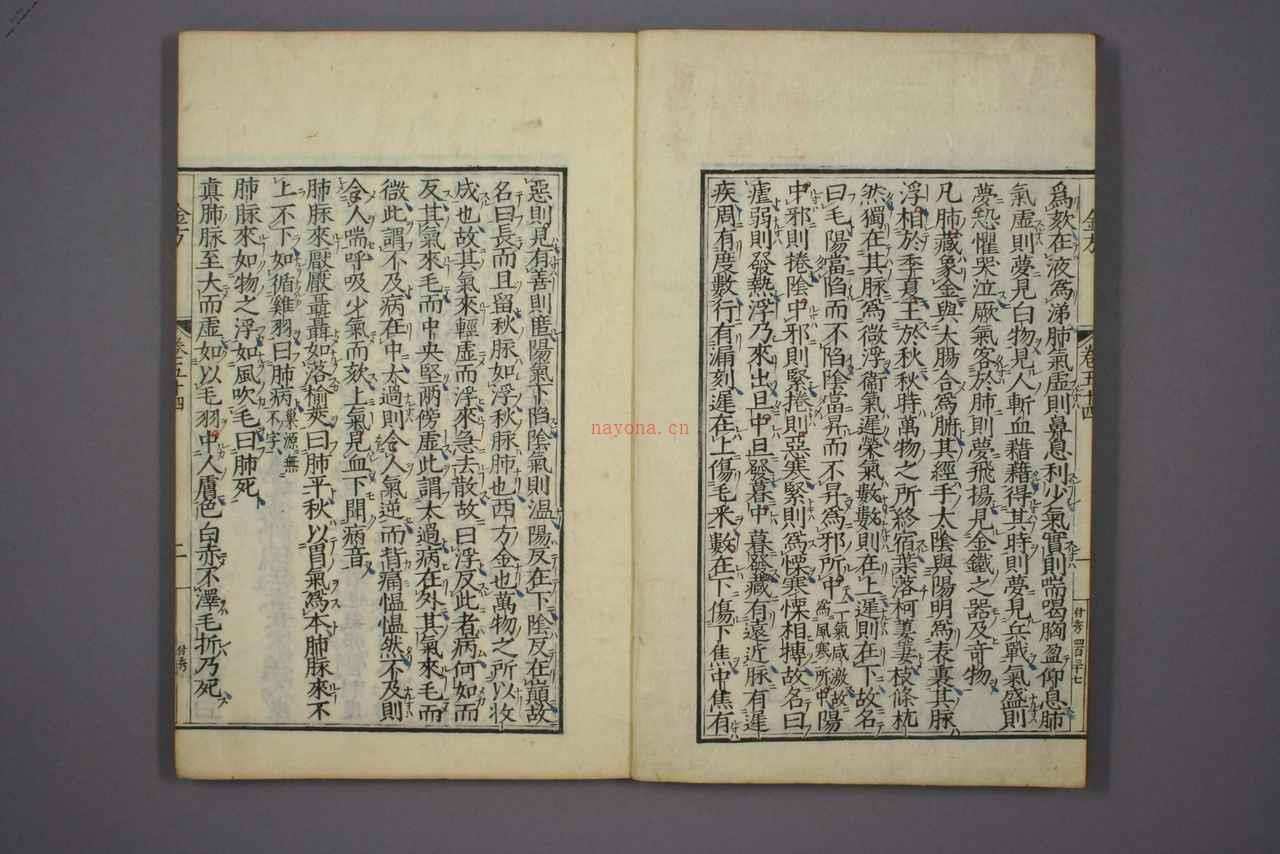 爲欬在液爲涕肺氣虛則鼻息利少氣實則喘喝胸盈仰息肺
氣虛則夢見白物見人斬血藉藉得其時則夢見兵戰氣盛則
夢恐懼哭泣厥氣客於肺則夢飛揚見金鐵之器及奇物
凡肺藏象金與大腸合爲腑其經手太陰與陽明爲表裏其脉
浮相於季夏王於秋秋時萬物之所終宿葉落柯萋萋枝條杌
然獨在其脉爲微浮衞氣遲榮氣數數則在上遲則在下故名
曰毛陽當陷而不陷陰當昇而不昇爲邪所中陽
中邪則捲陰中邪則緊捲則惡寒緊則爲慄寒慄相摶故名曰
瘧弱則發熱浮乃來出旦中旦發暮中暮發藏有遠近脉有遲
疾周有度數行有漏刻遲在上傷毛釆數在下傷下焦中焦有
惡則見有善則匿陽氣下陷陰氣則温陽反在下陰反在巔故
名曰長而且留秋脉如浮秋脉肺也西方金也萬物之所以收
成也故其氣來輕虛而浮來急去散故曰浮反此者病何如而
反其氣來毛而中央堅兩傍虛此謂太過病在外其氣來毛而
微此謂不及病在中太過則令人氣逆而背痛愠愠然不及則
令人喘呼吸少氣而欬上氣見血下聞病音
肺脉來厭厭聶聶如落榆莢曰肺平秋以胃氣爲本肺脉來不
上不下如循雞羽曰肺病巢源無不字
肺脉來如物之浮如風吹毛曰肺死
真肺脉至大而虛如以毛羽中人膚色白赤不澤毛折乃死
金方
卷五十四
一
nayona.cn